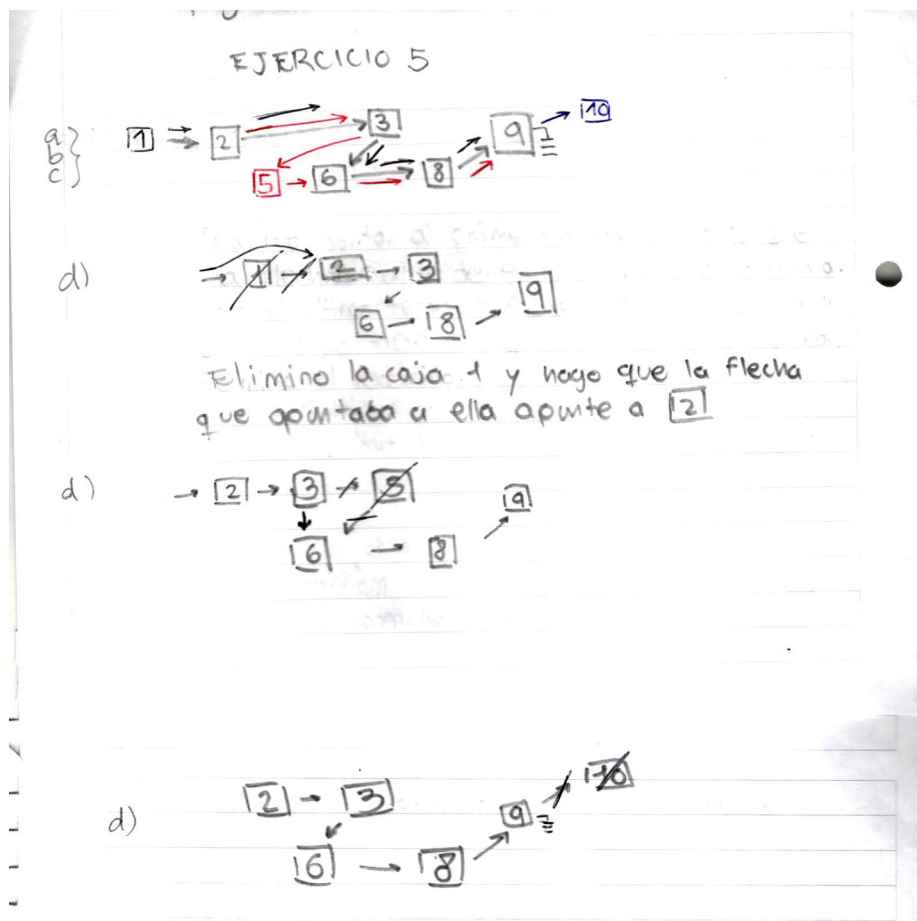 EJERCICIO 5
a}
b}
c}
1 2 3 9 10
5 6 8
d) 1 2 3
6 8 9
Elimino la caja 1 y hago que la flecha
que apuntaba a ella apunte a 2
d) 2 3 5 9
6 8
2 3 9 10
d)
6 8